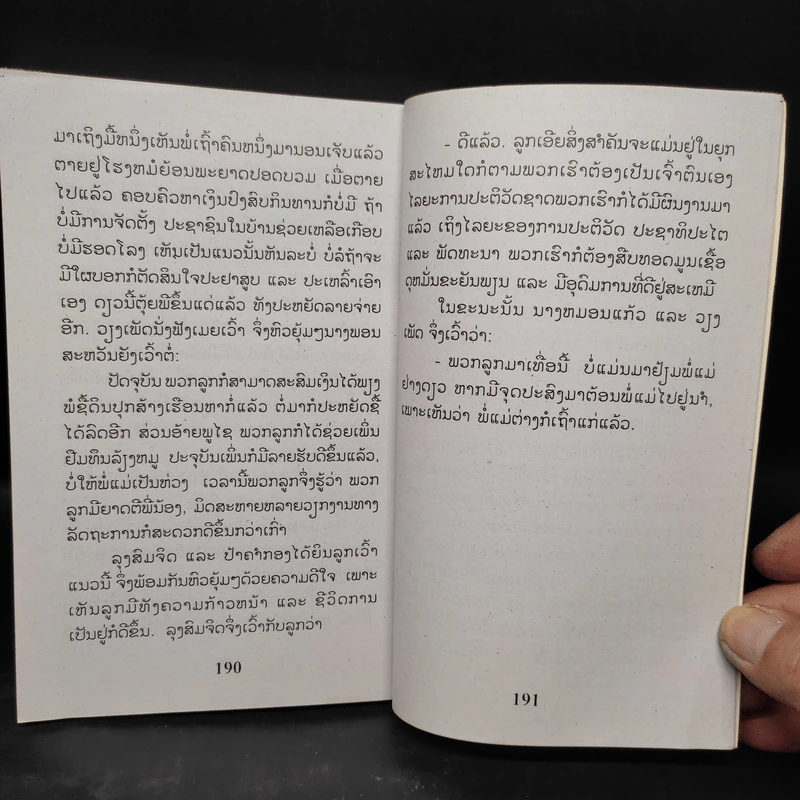 ມາເຖິງມື້ຫນຶ່ງເຫັນພໍ່ເຖົ້າຄົນຫນຶ່ງມານອນເຈັບແລ້ວ
ຕາຍຢູ່ໂຮງຫມໍຍ້ອນພະຍາດປອດບວມ ເມື່ອຕາຍ
ໄປແລ້ວ ຄອບຄົວຫາເງິນປົງສົບກິນທານກໍບໍ່ມີ ຖ້າ
ບໍ່ມີການຈັດຕັ້ງ ປະຊາຊົນໃນບ້ານຊ່ວຍເຫລືອເກືອບ
ບໍ່ມີຮອດໂລງ ເຫັນເປັນແນວນັ້ນຫັນລະບໍ່ ບໍ່ລໍຖ້າຈະ
ມີໃຜບອກກໍຕັດສິນໃຈປະຢາສູບ ແລະ ປະເຫລົ້າເອົາ
ເອງ ດຽວນີ້ຕຸ້ຍພີຂຶ້ນແດ່ແລ້ວ ທັງປະຫຍັດລາຍຈ່າຍ
ອີກ. ວຽງເພັດນັ່ງຟັງເມຍເວົ້າ ຈຶ່ງຫົວຍຸ້ມໆນາງພອນ
ສະຫວັນຍັງເວົ້າຕໍ່:
ປັດຈຸບັນ ພວກລູກກໍສາມາດສະສົມເງິນໄດ້ພຽງ
ພໍຊື້ດິນປຸກສ້າງເຮືອນຫາກໍ່ແລ້ວ ຕໍ່ມາກໍປະຫຍັດຊື້
ໄດ້ລົດອີກ ສ່ວນອ້າຍພູໄຊ ພວກລູກກໍໄດ້ຊ່ວຍເພິ່ນ
ຢືມທຶນລ້ຽງຫມູ ປະຈຸບັນເພິ່ນກໍມີລາຍຮັບດີຂຶ້ນແລ້ວ,
ບໍ່ໃຫ້ພໍ່ແມ່ເປັນຫ່ວງ ເວລານີ້ພວກລູກຈຶ່ງຮູ້ວ່າ ພວກ
ລູກມີຍາດຕີພີ່ນ້ອງ, ມິດສະຫາຍຫລາຍວຽກງານທາງ
ລັດຖະການກໍສະດວກດີຂຶ້ນກວ່າເກົ່າ
ລຸງສົມຈິດ ແລະ ປ້າຄຳກອງໄດ້ຍິນລູກເວົ້າ
ແນວນີ້ ຈຶ່ງພ້ອມກັນຫົວຍຸ້ມໆດ້ວຍຄວາມດີໃຈ ເພາະ
ເຫັນລູກມີທັງຄວາມກ້າວຫນ້າ ແລະ ຊີວິດການ
ເປັນຢູ່ກໍດີຂຶ້ນ. ລຸງສົມຈິດຈຶ່ງເວົ້າກັບລູກວ່າ
190
- ດີແລ້ວ. ລູກເອີຍສິ່ງສຳຄັນຈະແມ່ນຢູ່ໃນຍຸກ
ສະໄຫມໃດກໍຕາມພວກເຮົາຕ້ອງເປັນເຈົ້າຕົນເອງ
ໄລຍະການປະຕິວັດຊາດພວກເຮົາກໍໄດ້ມີຜົນງານມາ
ແລ້ວ ເຖິງໄລຍະຂອງການປະຕິວັດ ປະຊາທິປະໄຕ
ແລະ ພັດທະນາ ພວກເຮົາກໍຕ້ອງສືບທອດມູນເຊື້ອ
ດຸຫມັ່ນຂະຍັນພຽນ ແລະ ມີອຸດົມການທີ່ດີຢູ່ສະເຫມີ
ໃນຂະນະນັ້ນ ນາງຫມອນແກ້ວ ແລະ ວຽງ
ເພັດ ຈຶ່ງເວົ້າວ່າ:
- ພວກລູກມາເທື່ອນີ້ ບໍ່ແມ່ນມາຢ້ຽມພໍ່ແມ່
ຢ່າງດຽວ ຫາກມີຈຸດປະສົງມາຕ້ອນພໍ່ແມ່ໄປຢູ່ນຳ,
ເພາະເຫັນວ່າ ພໍ່ແມ່ຕ່າງກໍເຖົ້າແກ່ແລ້ວ.
191